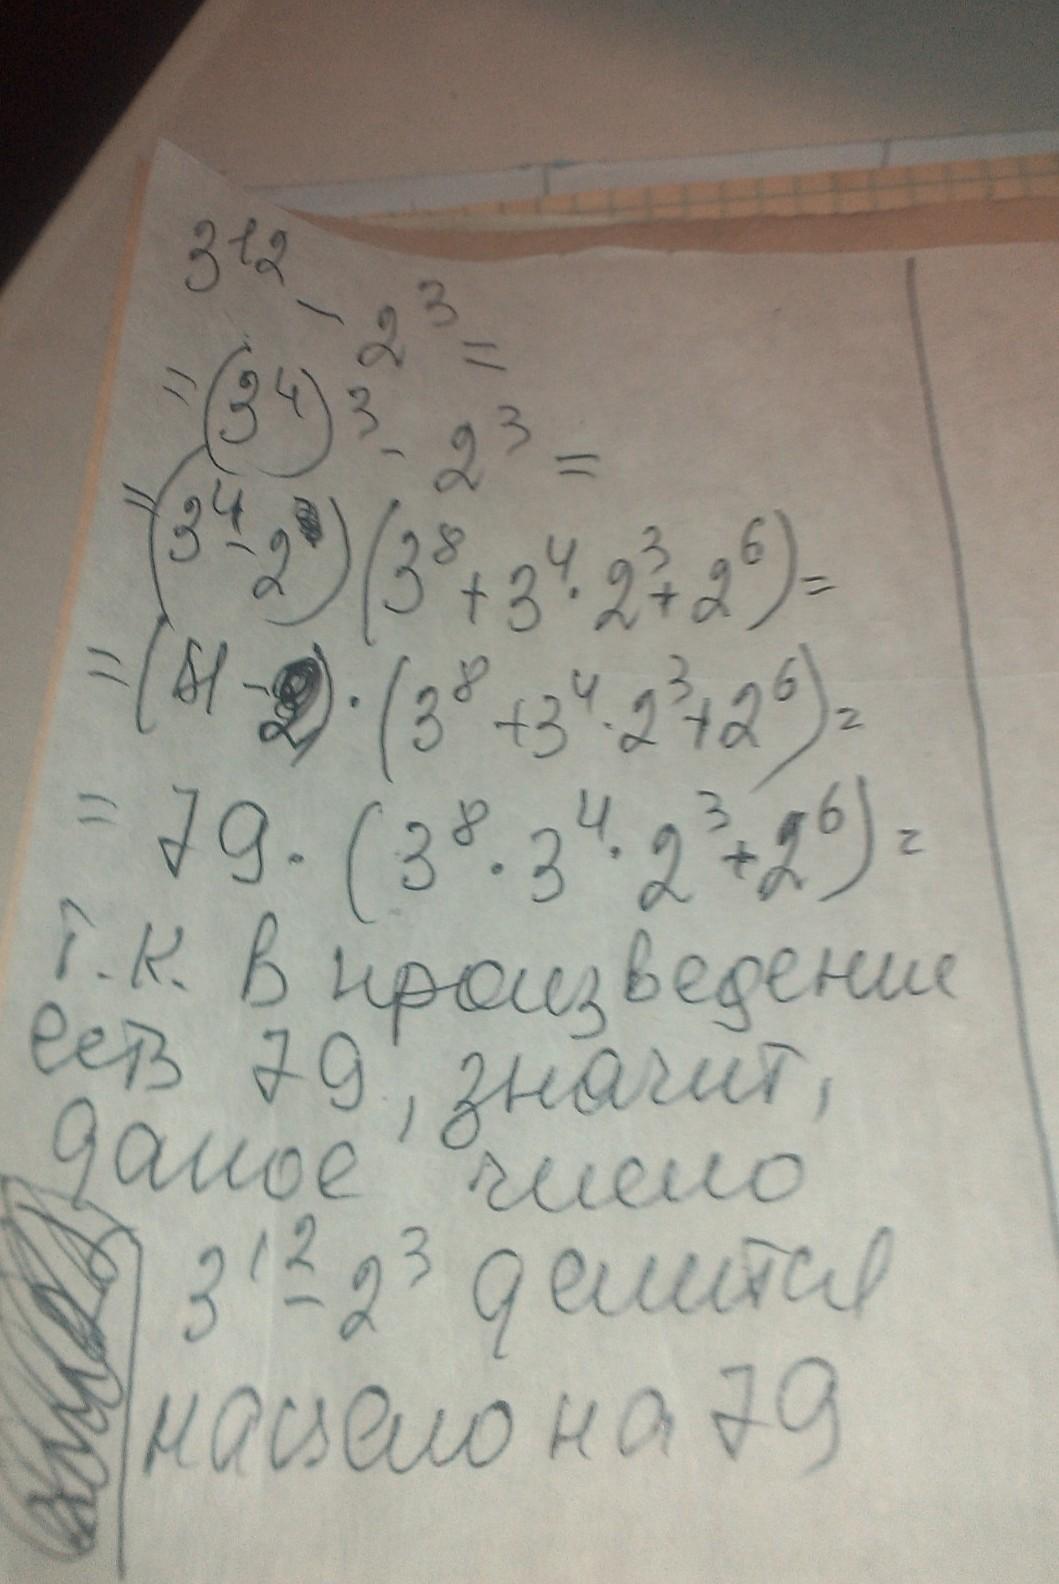 3¹² - 2³ =
= (3⁴)³ - 2³ =
= (3⁴ - 2)(3⁸ + 3⁴ · 2³ + 2⁶) =
= (81 - 2) · (3⁸ + 3⁴ · 2³ + 2⁶) =
= 79 · (3⁸ · 3⁴ · 2³ + 2⁶) =
т.к. в произведении
есть 79, значит,
даное число
3¹² - 2³ делится
нацело на 79